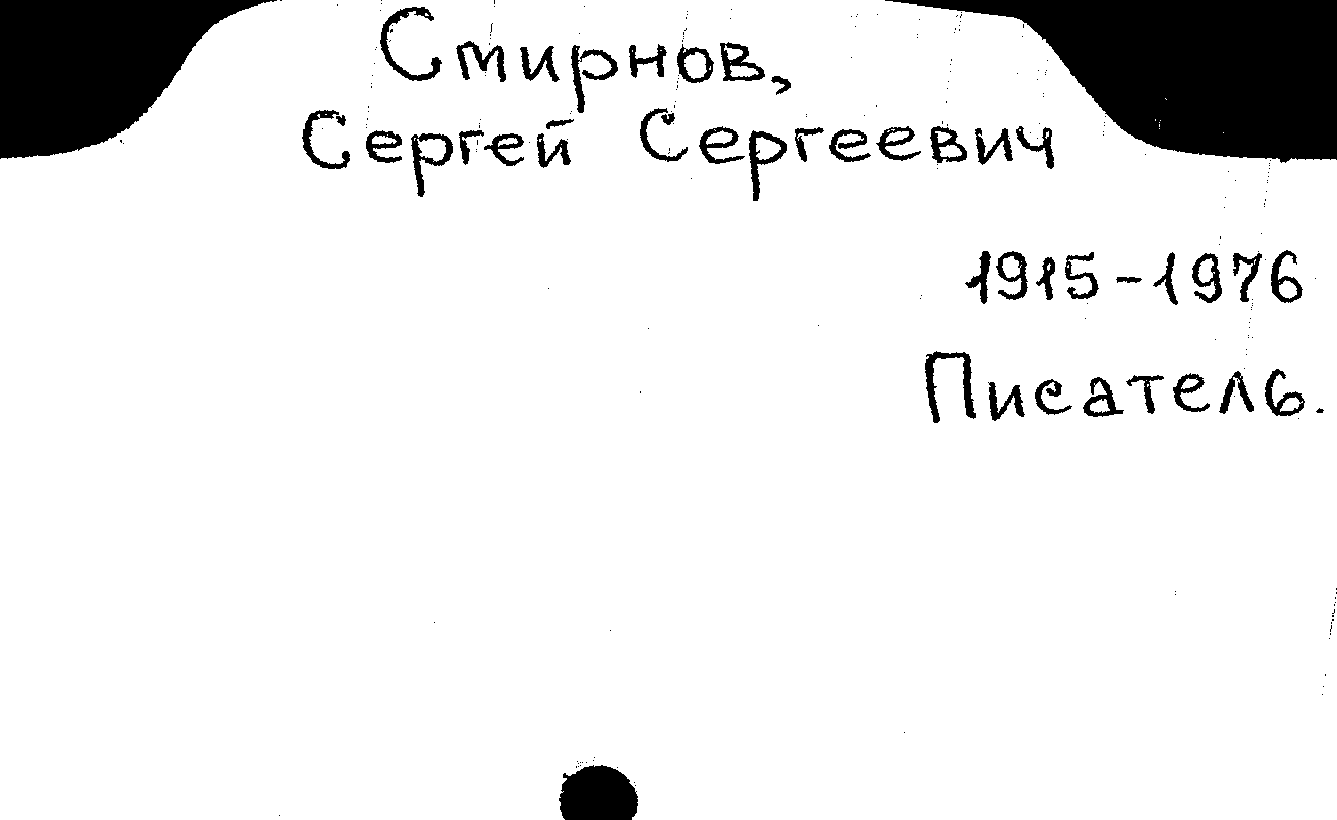 Смирнов,
Сергей Сергеевич
1915-1976
Писатель.